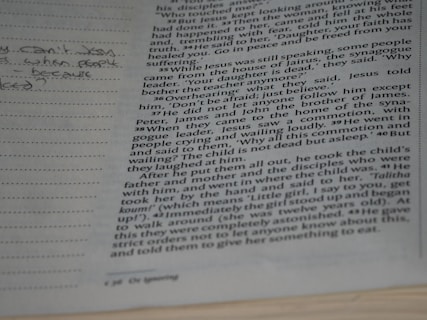 y can't Jesus
s when people
because
31 'You
his disciples answered,
'Who touched me?"'
32 But Jesus kept looking around
had done it. 33 Then the woman, knowing what
had happened to her, came and fell at his feet
and, trembling with fear, told him the whole
truth. 34 He said to her, 'Daughter, your faith has
healed you. Go in peace and be freed from your
suffering.'
35 While Jesus was still speaking, some people
came from the house of Jairus, the synagogue
leader. 'Your daughter is dead,' they said. 'Why
bother the teacher anymore?'
36 Overhearing what they said, Jesus told
him, 'Don't be afraid; just believe.'
37 He did not let anyone follow him except
Peter, James and John the brother of James.
38 When they came to the home of the syna-
gogue leader, Jesus saw a commotion, with
people crying and wailing loudly. 39 He went in
and said to them, 'Why all this commotion and
wailing? The child is not dead but asleep.' 40 But
they laughed at him.
After he put them all out, he took the child's
father and mother and the disciples who were
with him, and went in where the child was. 41 He
took her by the hand and said to her, 'Talitha
koum!' (which means 'Little girl, I say to you, get
up!'). 42 Immediately the girl stood up and began
to walk around (she was twelve years old). At
this they were completely astonished. 43 He gave
strict orders not to let anyone know about this,
and told them to give her something to eat.
36 Or Ignoring